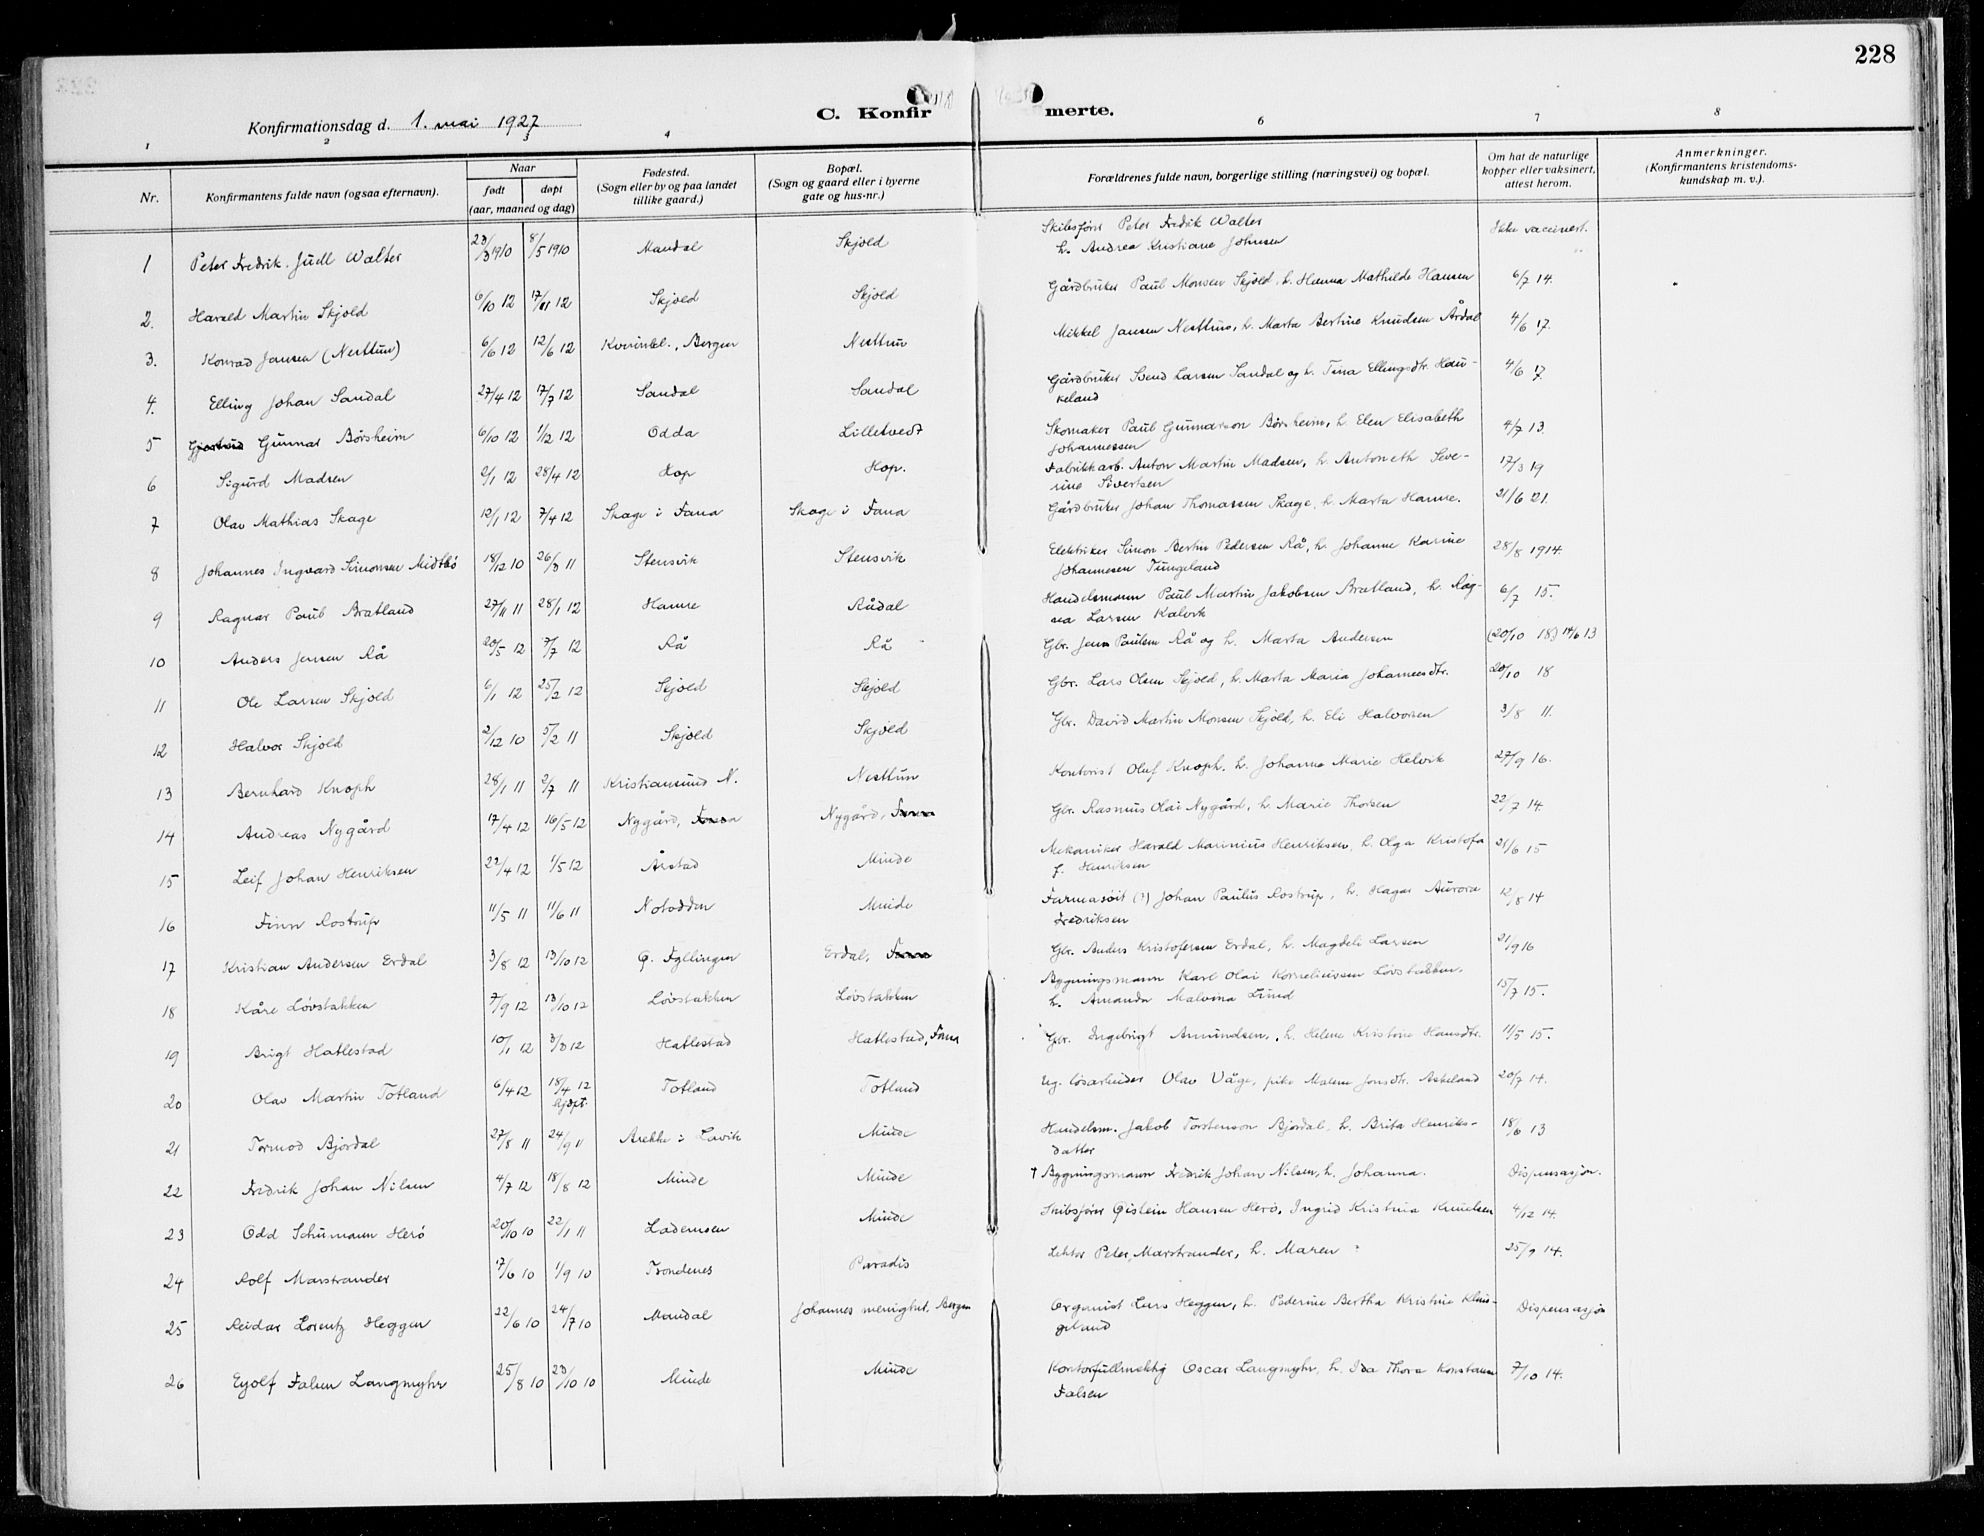 228
Konfirmationsdag d. 1. mai 1927
C. Konfirmerte.
1 2 3 4 6 7 8
Nr.
Konfirmantens fulde navn (ogsaa efternavn).
Naar
født døpt
(aar, maaned og dag)
Fødested.
(Sogn eller by og paa landet
tillike gaard.)
Bopæl.
(Sogn og gaard eller i byerne
gate og hus-nr.)
Forældrenes fulde navn, borgerlige stilling (næringsvei) og bopæl.
Om hat de naturlige
kopper eller vaksinert,
attest herom.
Anmerkninger.
(Konfirmantens kristendoms-
kundskap m. v.).
1 Peter Fredrik Juell Walter 23/3 1910 8/5 1910 Mandal Skjold Skibsfører Peter Fredrik Walter Ikke vaccinert.
h. Andrea Kristiane Johnsen
2. Harald Martin Skjold 6/10 12 17/11 12 Skjold Skjold Gårdbruker Paul Monsen Skjold, h. Hanna Mathilde Hansen 6/7 14.
3. Konrad Jansen (Nesttun) 6/6 12 12/6 12 Kvinnekl., Bergen Nesttun Mikkel Jansen Nesttun, h. Marta Bertine Knudsen Årdal 4/6 17.
4. Elling Johan Sandal 27/4 12 17/7 12 Sandal Sandal Gårdbruker Svend Larsen Sandal og h. Tina Ellingsdtr. Hau- 4/6 17.
keland
5 Gunnar Børsheim 6/10 12 1/12 12 Odda Lilletvedt Skomaker Paul Gunnarson Børsheim, h. Elen Elisabeth 4/7 13.
Johannessen
6 Sigurd Madsen 2/1 12 28/4 12 Hop Hop. Fabrikkarb. Anton Martin Madsen, h. Antoneth Seve- 17/3 19
rine Sivertsen
7 Olav Mathias Skage 12/1 12 7/4 12 Skage i Fana Skage i Fana Gårdbruker Johan Thomassen Skage, h. Marta Hanne. 21/6 21.
8 Johannes Ingvard Simonsen Midtbø 18/12 10 26/3 11 Stensvik Stensvik Elektriker Simon Bertin Pedersen Rå, h. Johanne Karine 28/8 1914.
Johannesen Tungeland
9 Ragnar Paul Bratland 27/11 11 28/1 12 Hamre Rådal Handelsmann Paul Martin Jakobsen Bratland, h. Rag- 6/7 15.
na Larsen Kalvik
10 Anders Jensen Rå 20/5 12 7/7 12 Rå Rå Gbr. Jens Paulsen Rå og h. Marta Andersen (20/10 18) 14/6 13
11 Ole Larsen Skjold 6/1 12 25/2 12 Skjold Skjold Gbr. Lars Olsen Skjold, h. Marta Maria Johannesdtr. 20/10 18
12 Halvor Skjold 2/12 10 5/2 11 Skjold Skjold Gbr. David Martin Monsen Skjold, h. Eli Halvorsen 3/8 11.
13 Bernhard Knoph 28/1 11 2/7 11 Kristiansund N. Nesttun Kontorist Oluf Knoph, h. Johanna Marie Helvik 27/9 16.
14 Andreas Nygård 17/4 12 16/5 12 Nygård, Fana Nygård, Fana Gbr. Rasmus Olai Nygård, h. Marie Thorsen 22/7 14.
15 Leif Johan Henriksen 22/4 12 1/5 12 Årstad Minde Mekaniker Harald Marinius Henriksen, h. Olga Kristofa 21/6 15
f. Henriksen
16 Finn Rostrup 11/5 11 11/6 11 Notodden Minde Farmasøit (?) Johan Paulus Rostrup, h. Hagar Aurora 12/8 14
Fredriksen
17 Kristian Andersen Erdal 3/8 12 13/10 12 Ø. Fyllingen Erdal, Fana Gbr. Anders Kristofersen Erdal, h. Magdeli Larsen 21/9 16
18 Kåre Løvstakken 7/9 12 13/10 12 Løvstakken Løvstakken Bygningsmann Karl Olai Korneliussen Løvstakken. 15/7 15.
h. Amanda Malvina Lund
19 Brigt Hatlestad 10/1 12 3/3 12 Hatlestad Hatlestad, Fana Gbr. Ingebrigt Amundsen, h. Helene Kristine Hansdtr. 11/5 15.
20 Olav Martin Totland 6/4 12 18/4 12 Hjdpt. Totland Totland Ug. løsarbeider Olav Våge, pike Malene Jonsdtr. Askeland 20/7 14.
21 Tormod Bjordal 27/8 11 24/9 11 Brekke i Lavik Minde Handelsm. Jakob Torstenson Bjordal, h. Brita Henriks- 18/6 13
datter
22 Fredrik Johan Nilsen 4/7 12 18/8 12 Minde Minde † Bygningsmann Fredrik Johan Nilsen, h. Johanna. Dispensasjon.
23 Odd Schumann Herø 20/10 10 22/1 11 Lademoen Minde Skibsfører Øistein Hansen Herø, Ingrid Kristina Knudsen 4/12 14.
24 Rolf Marstrander 7/6 10 1/9 10 Trondenes Paradis Lektor Peter Marstrander, h. Maren 25/9 14.
25 Reidar Lorentz Heggen 22/6 10 24/7 10 Mandal Johannes menighet, Bergen Organist Lars Heggen, h. Pederine Bertha Kristine Klun- Dispensasjon
geland
26 Eyolf Falsen Langmyhr 25/8 10 23/10 10 Minde Minde Kontorfullmektig Oscar Langmyhr, h. Ida Thora Konstanse 7/10 14.
Falsen